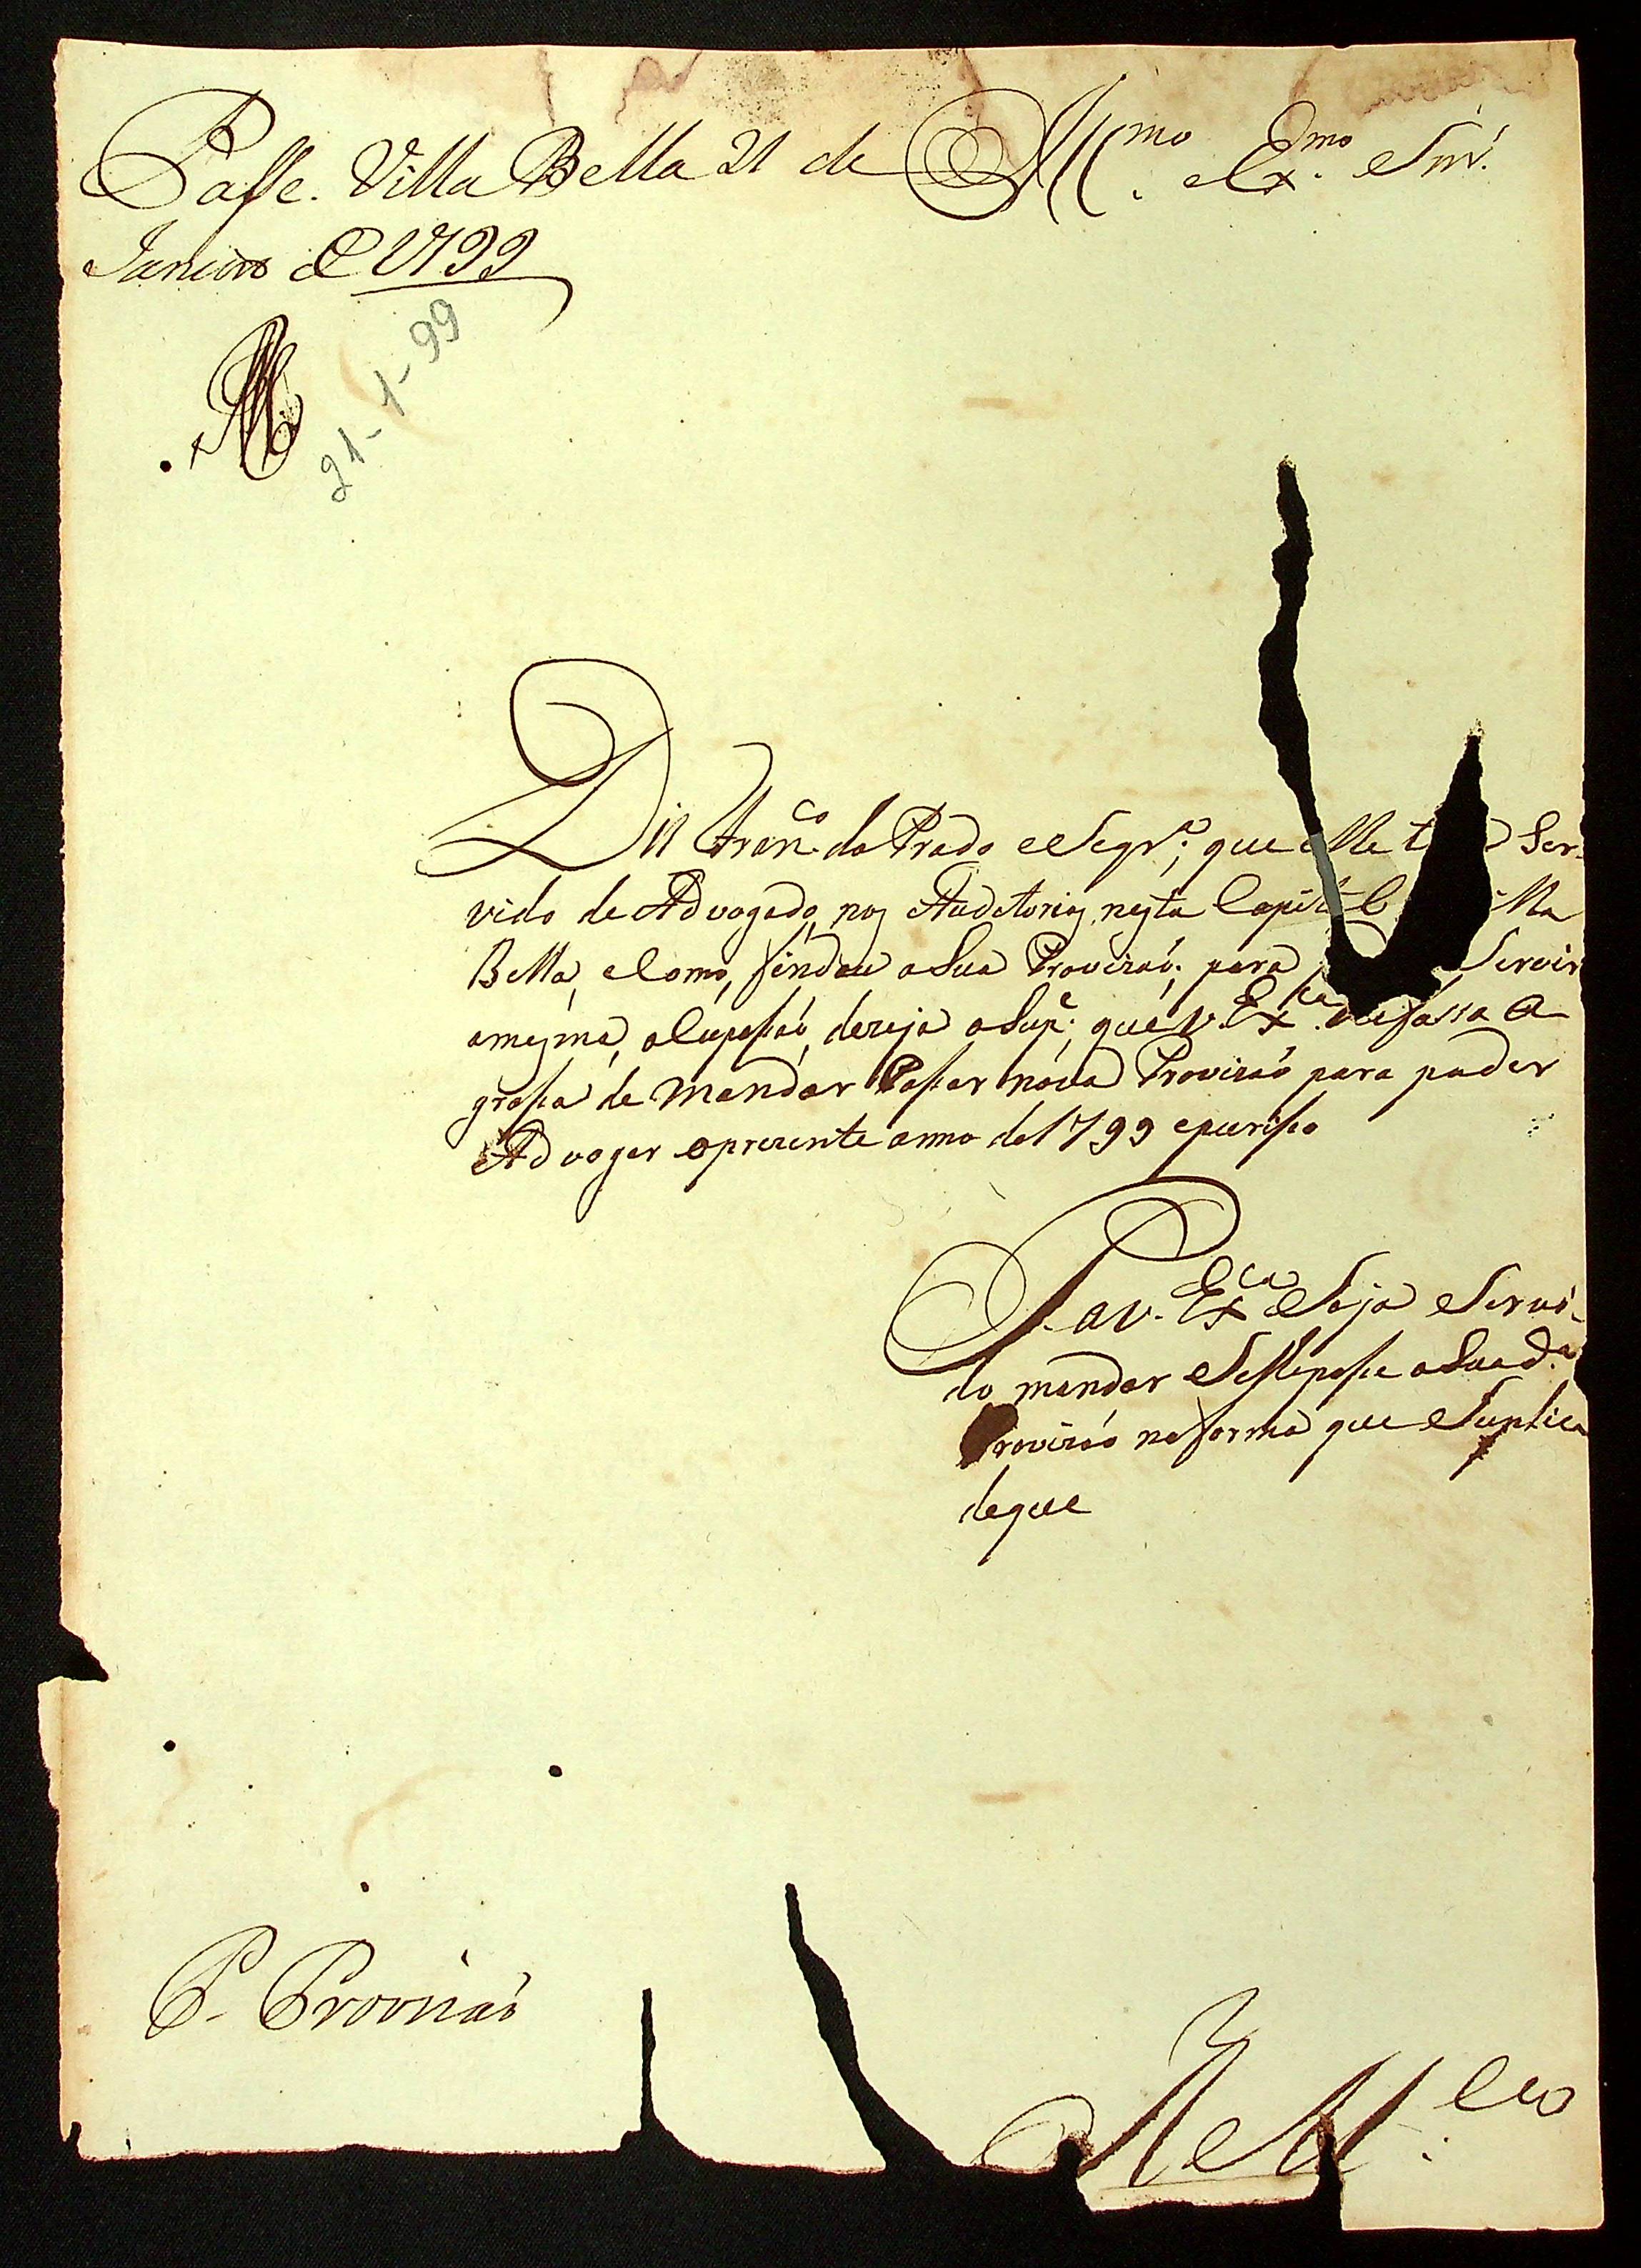 Passe. Villa Bella 21 de
Janeiro de 1799
21-1-99
Illmo. e Exmo. Snr.
Diz Franco. do Prado e Segra., que elle t Ser-
vido de Advogado, nos Auditorios, nesta Capital Villa
Bella, e Como, findou a Sua Provizaó, para Servir
a mesma, o Cupasaó, dezeja o Supe. que V. Exca. lhe fassa a
grassa de mandar Passar nóva Provizaó para puder
Advogar o prezente anno de 1799 e puriso
P. a V. Exca. Seja Servi-
do mandar Se lhe passe a Sua da.
Provizaó na forma que Suplica
de que
P. Provizaó
E R Mce